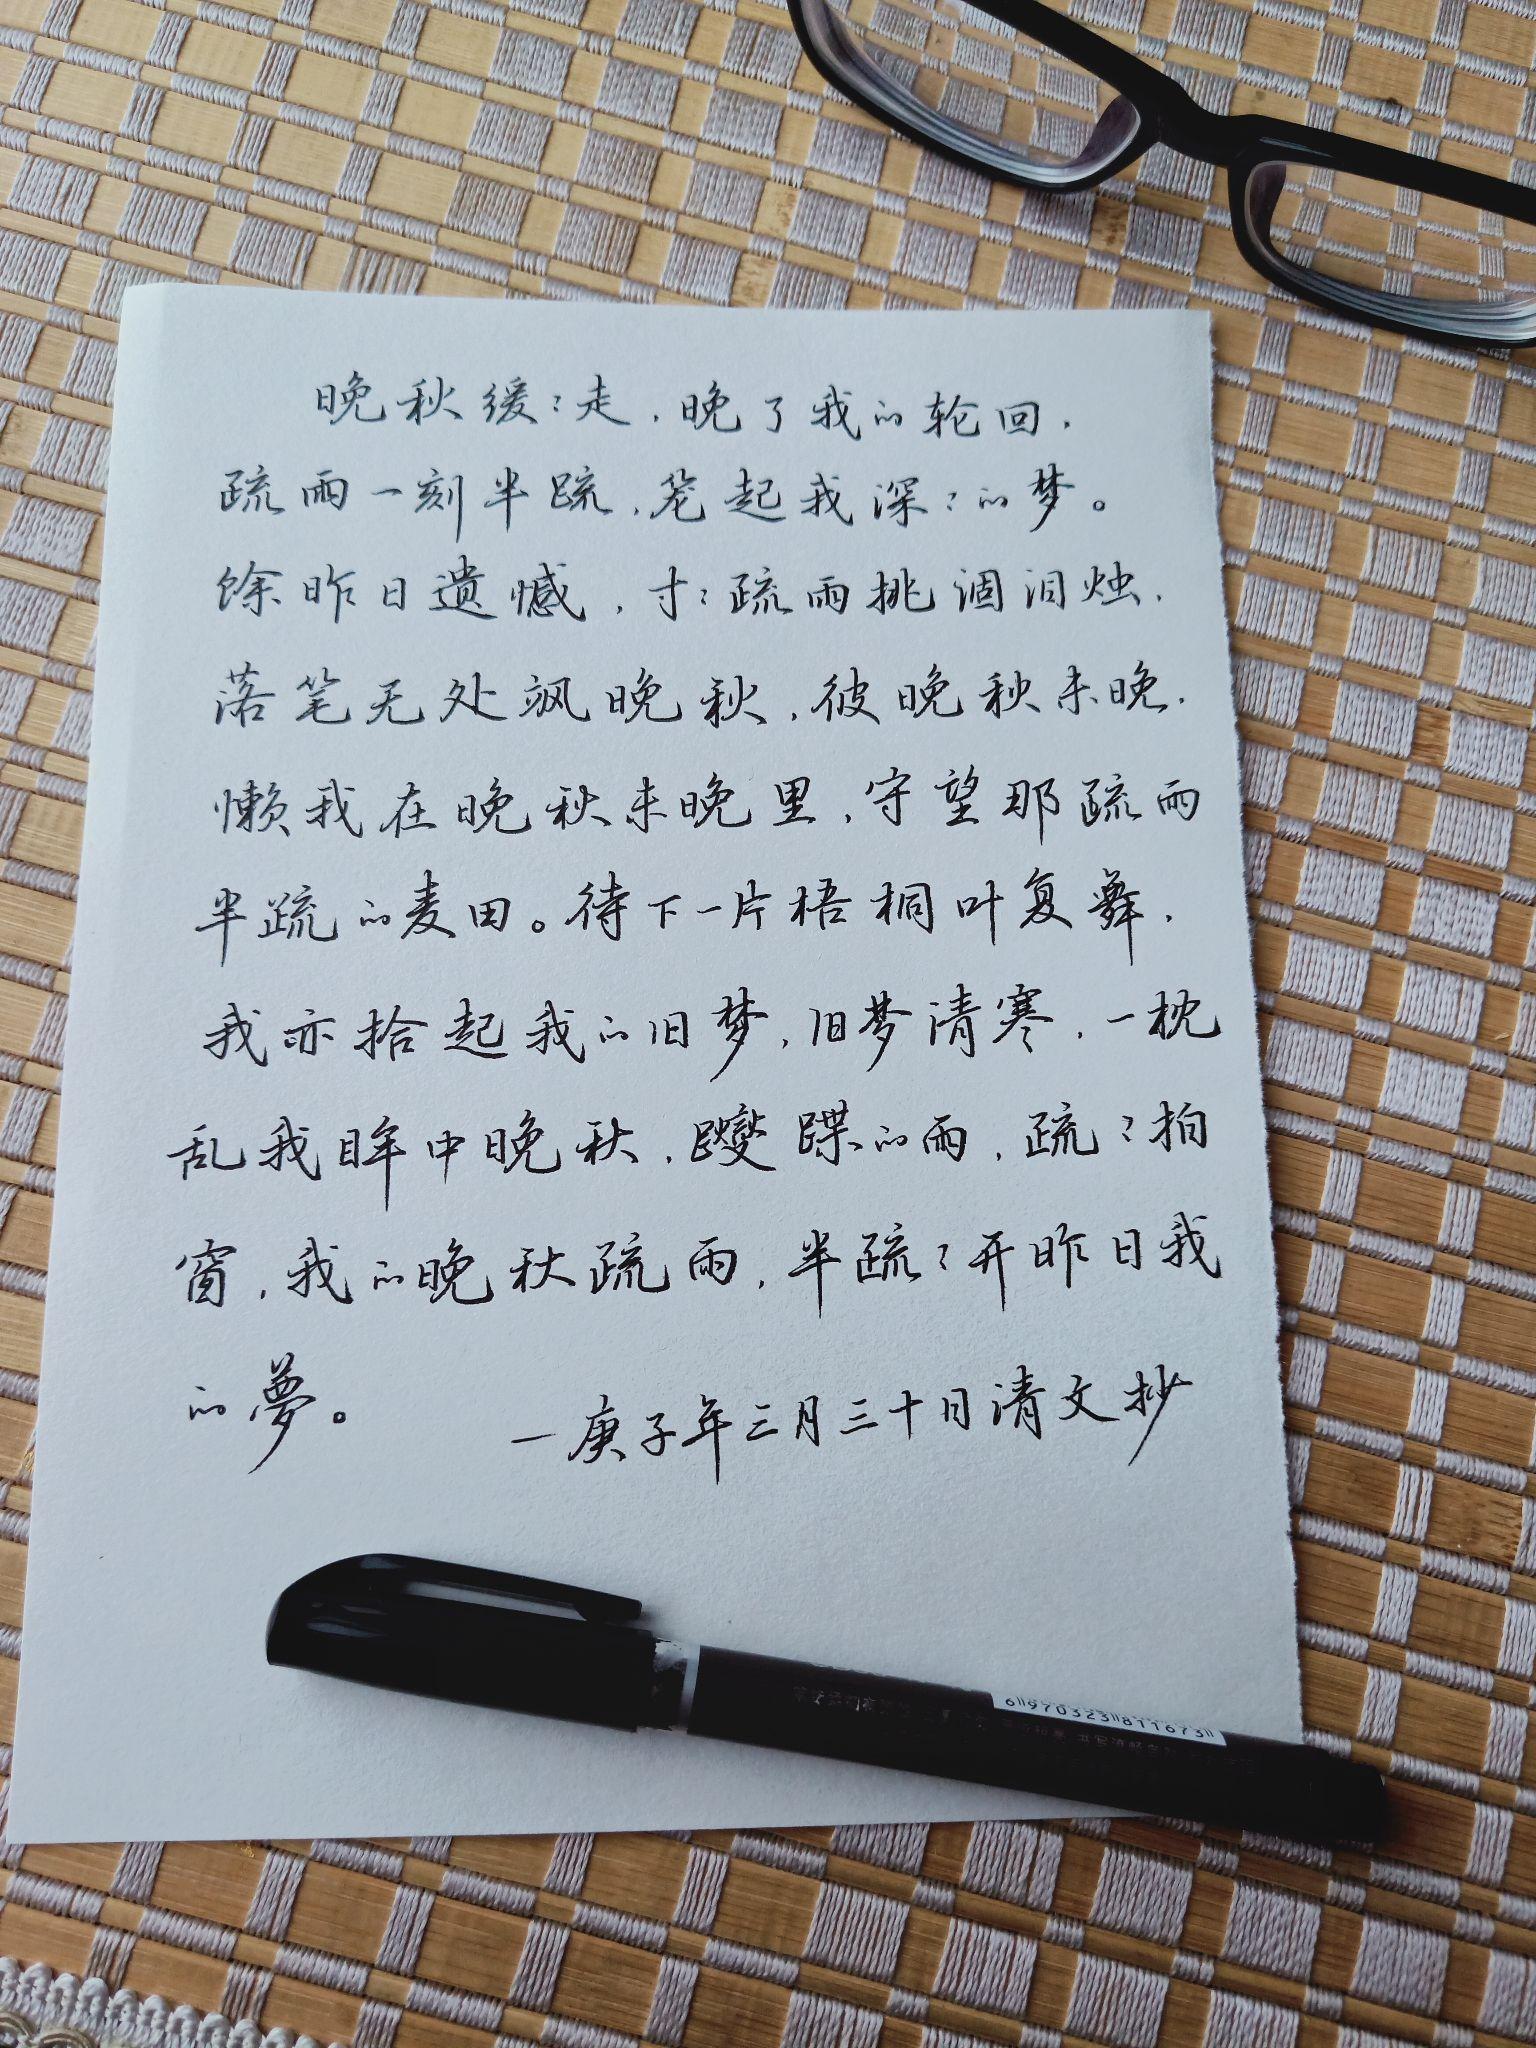 晚秋缓々走，晚了我的轮回，
疏雨一刻半疏，笼起我深々的梦。
馀昨日遗憾，寸々疏雨挑涸泪烛，
落笔无处飒晚秋，彼晚秋未晚，
懒我在晚秋未晚里，守望那疏雨
半疏的麦田。待下一片梧桐叶复舞，
我亦拾起我的旧梦，旧梦清寒，一枕
乱我眸中晚秋，躞蹀的雨，疏々拍
窗，我的晚秋疏雨，半疏々开昨日我
的夢。
一庚子年三月三十日清文抄
6 970323 811673